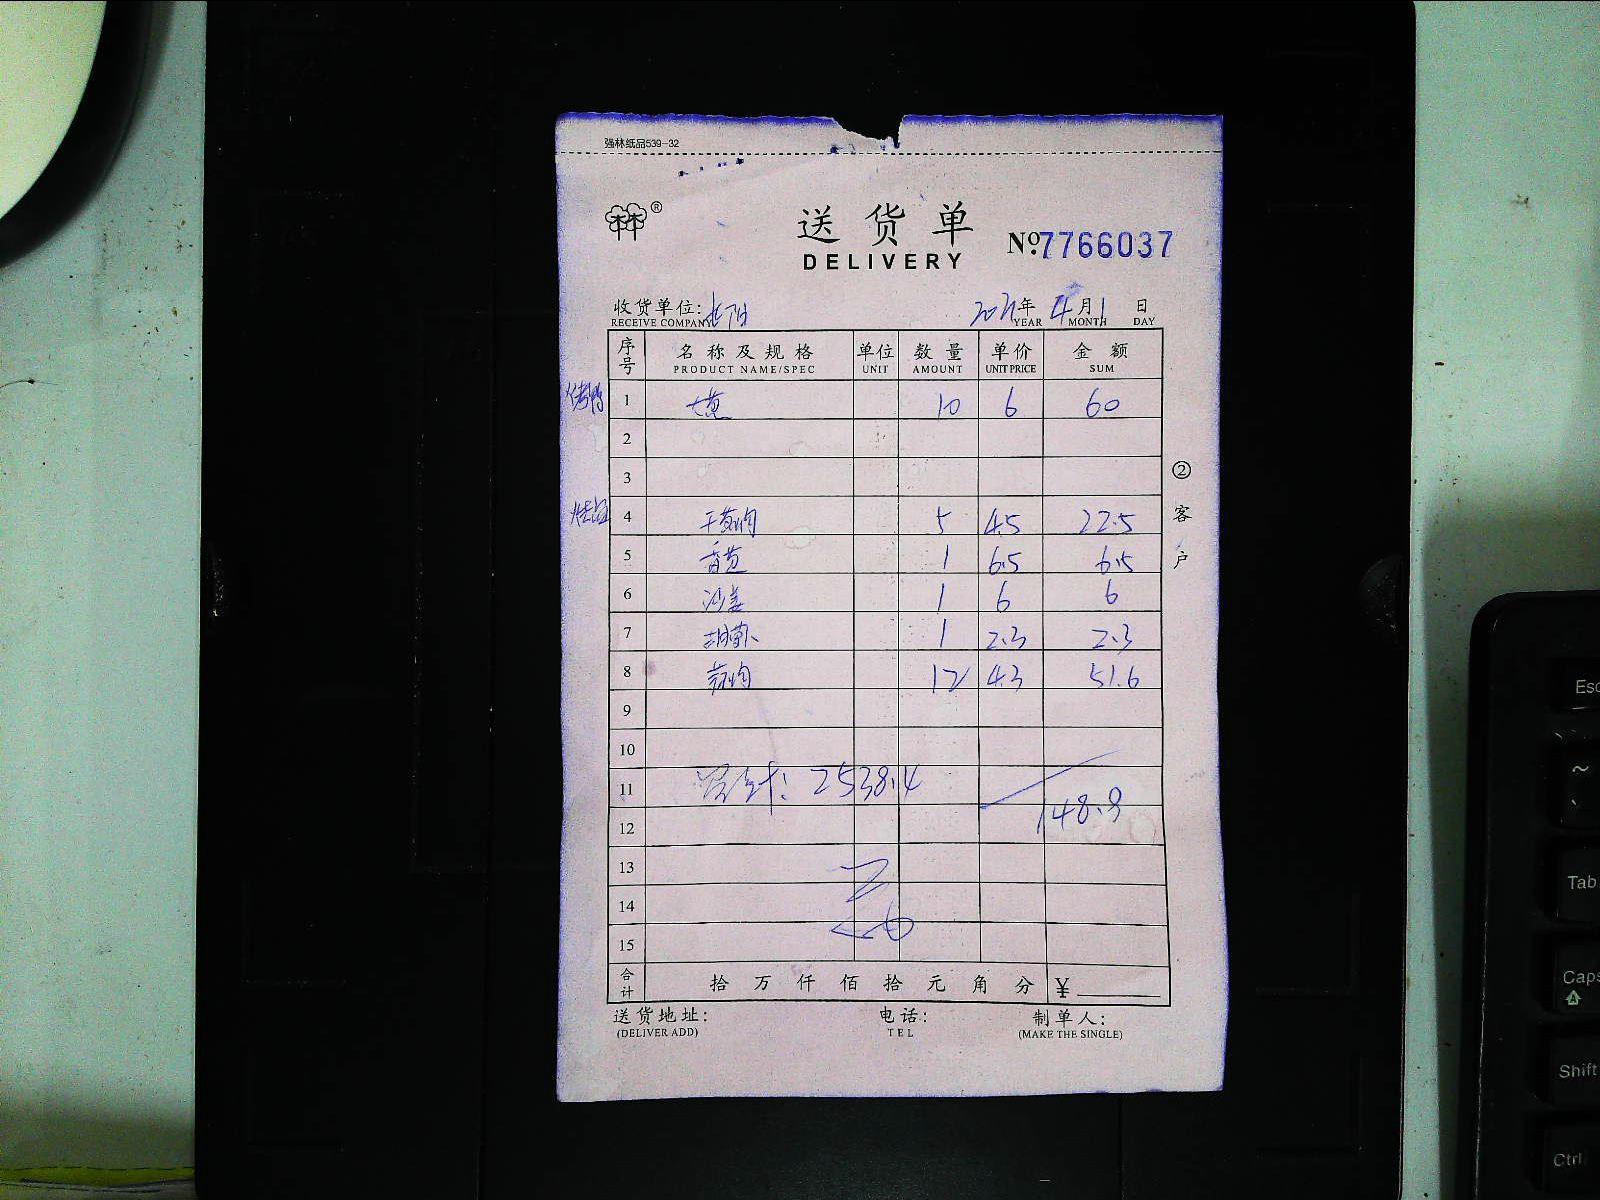 强林纸品539-32
®
送货单
DELIVERY
№7766037
收货单位:
RECEIVE COMPANY
2021年4月1日
YEAR MONTH DAY
序号 名称及规格 单位 数量 单价 金额
PRODUCT NAME/SPEC UNIT AMOUNT UNIT PRICE SUM
1 大葱 10 6 60
2
3
4 5 4.5 22.5
5 香葱 1 6.5 6.5
6 沙姜 1 6 6
7 1 2.3 2.3
8 12 4.3 51.6
9
10
11 总计: 2538.4
148.9
12
13
14
15
合计 拾万仟佰拾元角分 ¥
送货地址: 电话: 制单人:
(DELIVER ADD) TEL (MAKE THE SINGLE)
② 客户
Esc
~
Tab
Caps
Shift
Ctrl